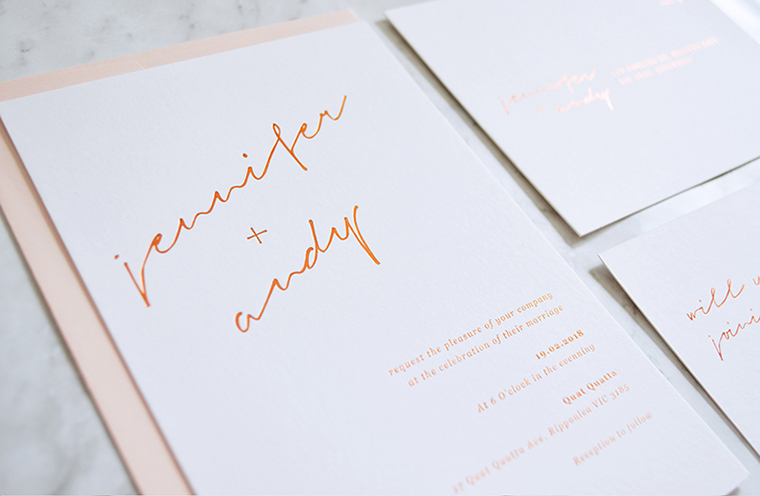 jennifer
+
andy
request the pleasure of your company
at the celebration of their marriage
19.02.2018
At 6 O'clock in the evening
Quat Quatta
17 Quat Quatta Ave, Ripponlea VIC 3185
Reception to follow
jennifer
+ andy
will
joini